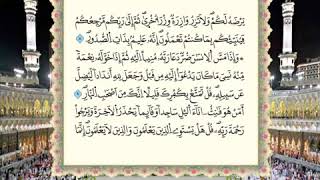 يَرْضَهُ لَكُمْ وَلَا تَزِرُ وَازِرَةٌ وِزْرَ أُخْرَىٰ ثُمَّ إِلَىٰ رَبِّكُم مَّرْجِعُكُمْ
فَيُنَبِّئُكُم بِمَا كُنتُمْ تَعْمَلُونَ إِنَّهُ عَلِيمٌ بِذَاتِ الصُّدُورِ
وَإِذَا مَسَّ الْإِنسَٰنَ ضُرٌّ دَعَا رَبَّهُ مُنِيبًا إِلَيْهِ ثُمَّ إِذَا خَوَّلَهُ نِعْمَةً
مِّنْهُ نَسِيَ مَا كَانَ يَدْعُوٓاْ إِلَيْهِ مِن قَبْلُ وَجَعَلَ لِلَّهِ أَندَادًا لِّيُضِلَّ
عَن سَبِيلِهِ قُلْ تَمَتَّعْ بِكُفْرِكَ قَلِيلًا إِنَّكَ مِنْ أَصْحَٰبِ النَّارِ
أَمَنْ هُوَ قَٰنِتٌ ءَانَآءَ اللَّيْلِ سَاجِدًا وَقَآئِمًا يَحْذَرُ الْأَخِرَةَ وَيَرْجُواْ
رَحْمَةَ رَبِّهِ قُلْ هَلْ يَسْتَوِي الَّذِينَ يَعْلَمُونَ وَالَّذِينَ لَا يَعْلَمُونَ إِنَّمَا